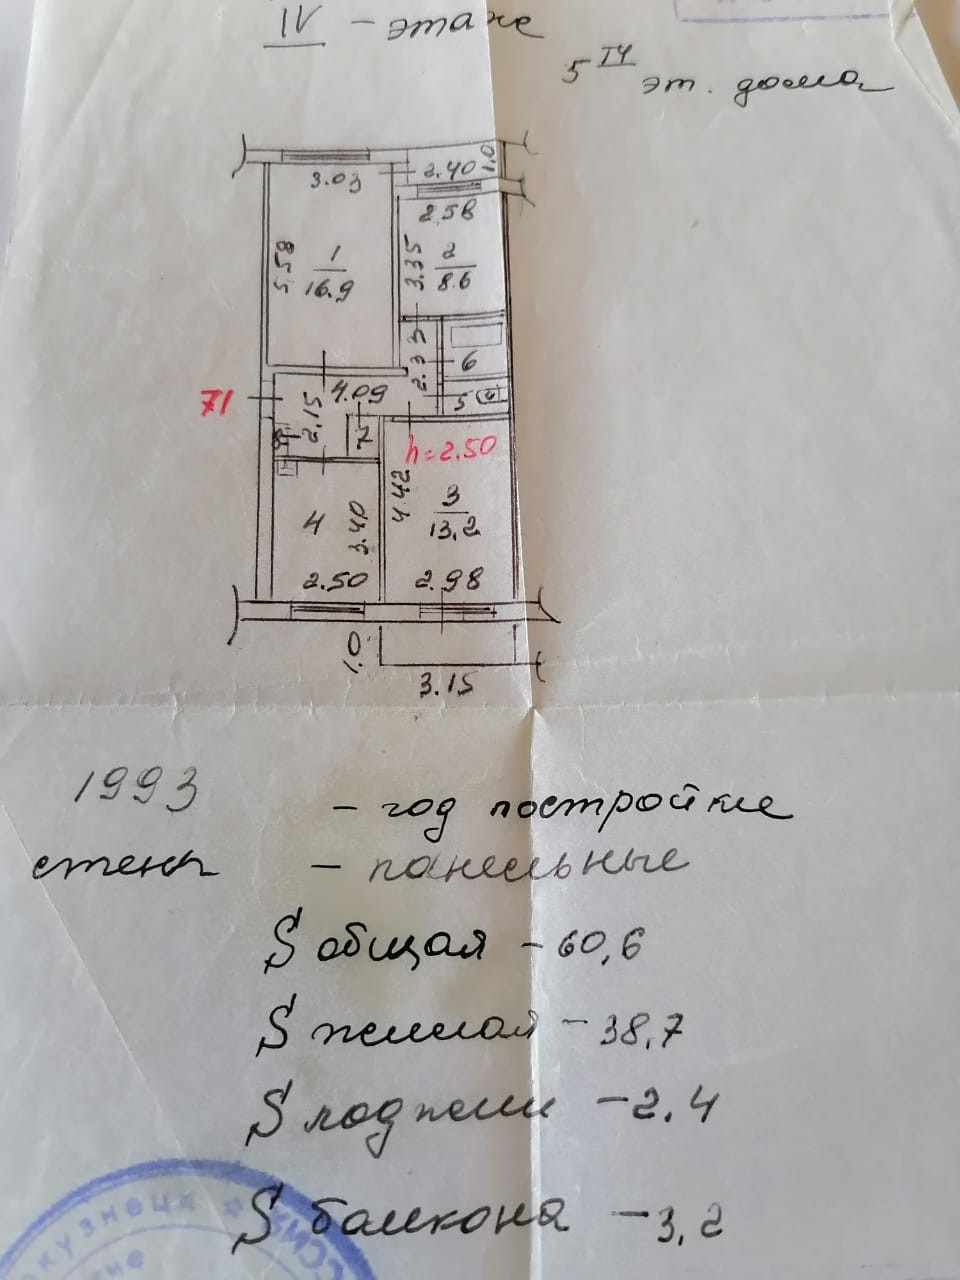 IV - этаже
5 ти
эт. дома
1.0
3.03
2.40
2,58
5.58
1
16.9
3.35
2
8.6
2.33
6
71
4.09
5
2.15
7
h=2.50
4.42
3
13,2
4
3.40
2.50
2.98
1,0
3.15
1993 - год постройки
стены - панельные
S общая - 60,6
S жилая - 38,7
S лоджии - 2.4
S балкона - 3,2
кузнецк